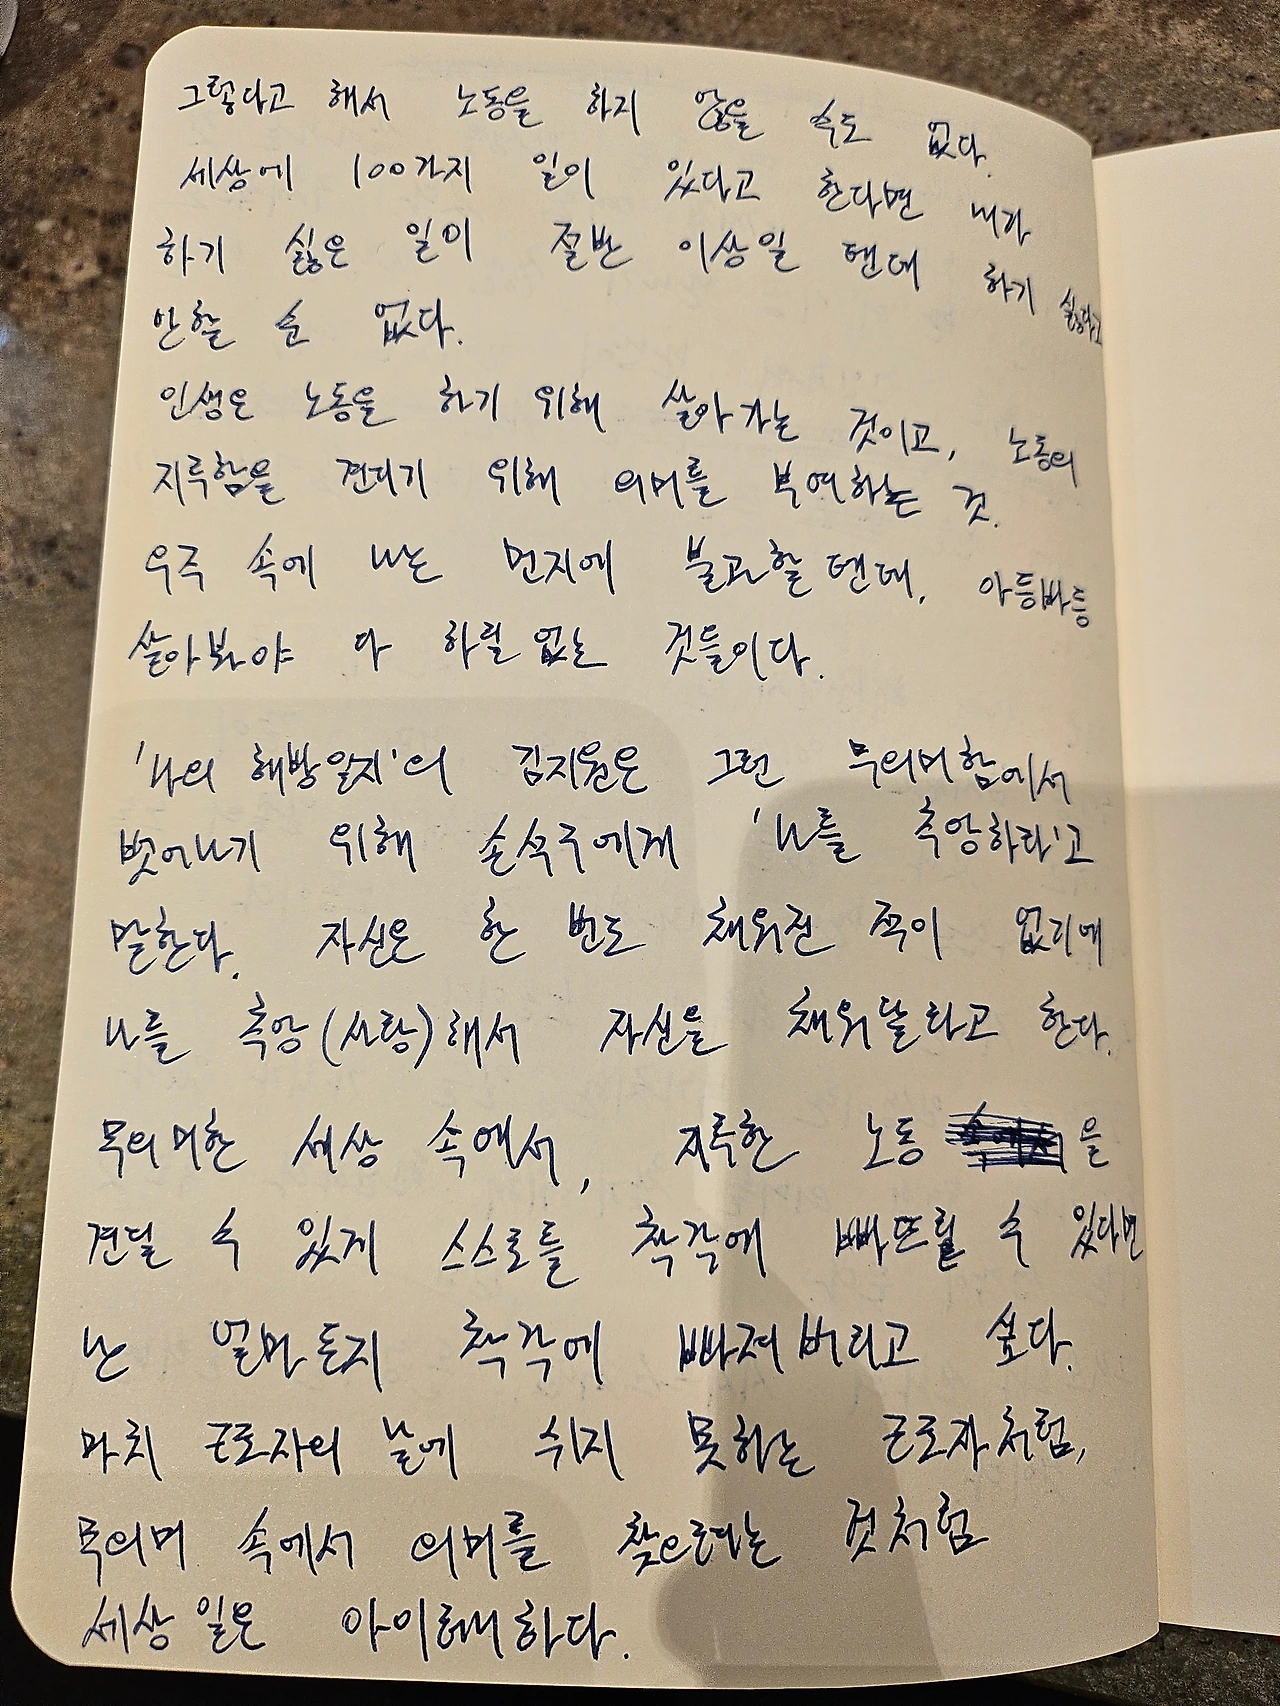 그렇다고 해서 노동을 하지 않을 수도 없다.
세상에 100가지 일이 있다고 한다면 내가
하기 싫은 일이 절반 이상일 텐데 하기 싫다고
안할 순 없다.
인생은 노동을 하기 위해 살아가는 것이고, 노동의
지루함을 견디기 위해 의미를 부여하는 것.
우주 속에 나는 먼지에 불과할 텐데, 아등바등
살아봐야 다 하릴없는 것들이다.
'나의 해방일지'의 김지원은 그런 무의미함에서
벗어나기 위해 손석구에게 '나를 추앙하라'고
말한다. 자신은 한 번도 채워진 적이 없기에
나를 추앙(사랑)해서 자신을 채워달라고 한다.
무의미한 세상 속에서, 지루한 노동 을
견딜 수 있게 스스로를 착각에 빠뜨릴 수 있다면
난 얼마든지 착각에 빠져버리고 싶다.
마치 근로자의 날에 쉬지 못하는 근로자처럼,
무의미 속에서 의미를 찾으려는 것처럼
세상 일은 아이러니하다.